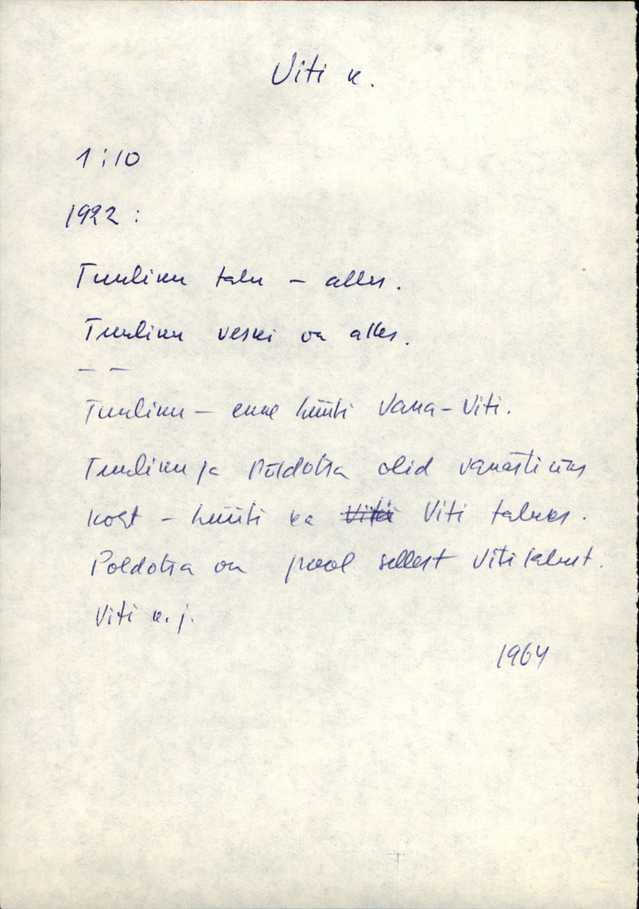 Viti k.
1:10
1922:
Tuuliku talu - alles.
Tuuliku veski on alles.
— —
Tuuliku - enne hüüti Vana-Viti.
Tuuliku ja Põldotsa olid vanasti üks
koht - hüüti ka Viti Viti taluks.
Põldotsa on pool sellest Viti talust.
Viti k. j.
1964